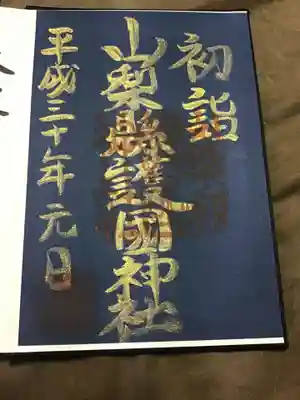 初詣
山梨縣護國神社
平成三十年元日